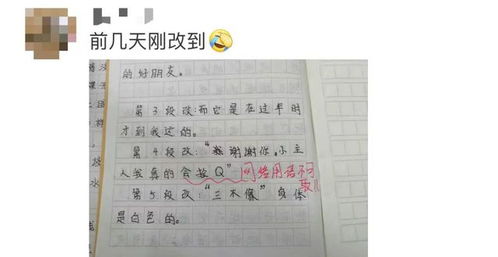 前几天刚改到🤣
的好朋友。
第3段改:而它是在过年时
才到我这的。
第4段改:“谢谢你,小主
人我真的会栓Q”网络用语不可
取!
第5段改:“三不像”身体
是白色的。